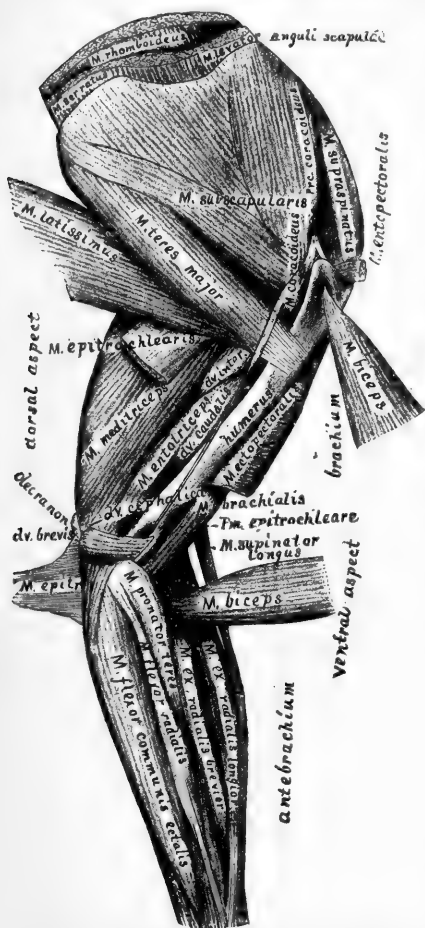 M. rhomboideus
M. levator anguli scapulae
M. serratus
M. supraspinatus
Prc. coracoideus
M. subscapularis
M. coracoideus
M. entopectoralis
M. latissimus
M. teres major
M. epitrochlearis
dorsal aspect
M. biceps
dv. inter.
M. meditriceps
M. entotriceps
dv. caudalis
humerus
M. ectopectoralis
brachium
dv. cephalica
M. brachialis
dv. brevis
Fm. epitrochleare
M. supinator
longus
M. epitr
M. biceps
ventral aspect
M. pronator teres
M. flexor radialis
M. flexor communis ectalis
M. ex. radialis brevior
M. ex radialis longior
antebrachium